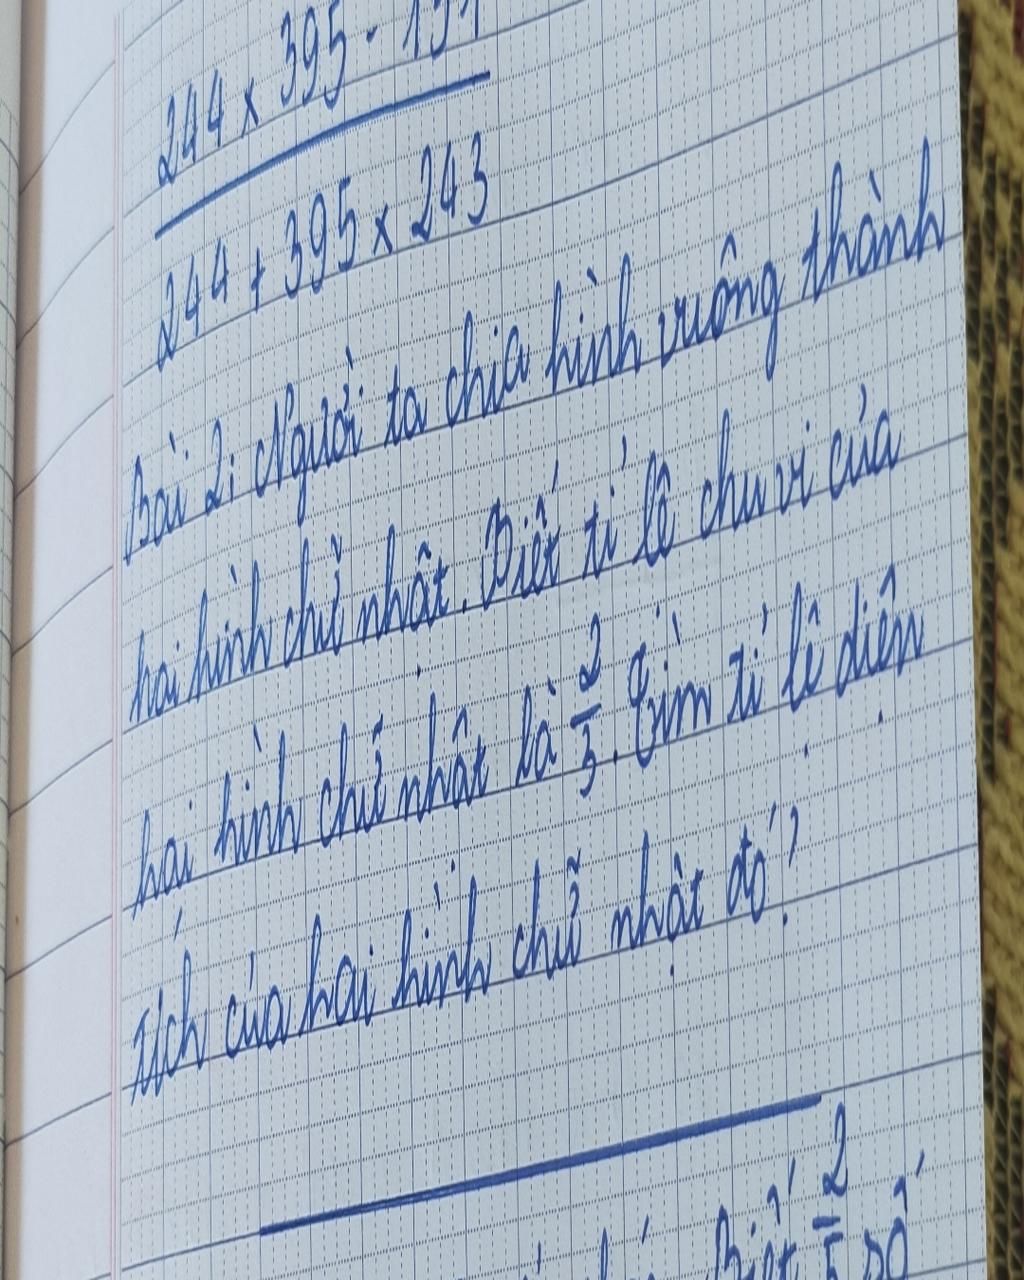 244 × 395 - 151
244 + 395 × 243
Bài 2: Người ta chia hình vuông thành
hai hình chữ nhật. Biết tỉ lệ chu vi của
hai hình chữ nhật là 2/3. Tìm tỉ lệ diện
tích của hai hình chữ nhật đó?
Biết 2/5 số